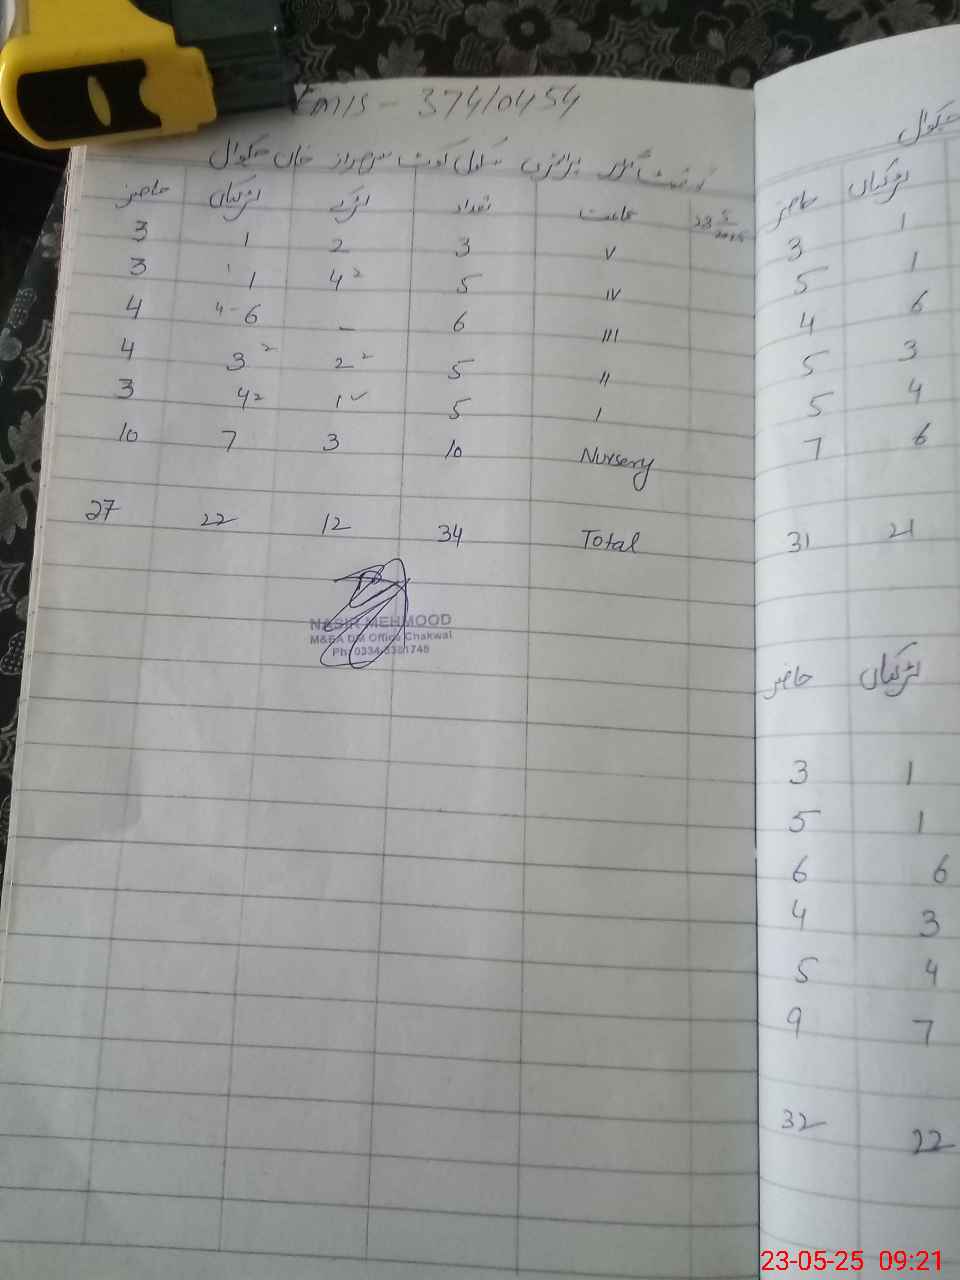 Emis - 37410454
گورنمنٹ گرلز پرائمری سکول کوٹ سرفراز خان چکوال
جماعت تعداد لڑکے لڑکیاں حاضر
V 3 2 1 3
IV 5 4 2 1 3
III 6 – 4 - 6 4
II 5 2 2 3 2 4
I 5 1 ✓ 4 2 3
Nursery 10 3 7 10
Total 34 12 22 27
NASIR MEHMOOD
M&EA DM Office Chakwal
چکوال
لڑکیاں حاضر
1 3
1 5
6 4
3 5
4 5
6 7
21 31
لڑکیاں حاضر
1 3
1 5
6 6
3 4
4 5
7 9
22 32
23-05-25 09:21